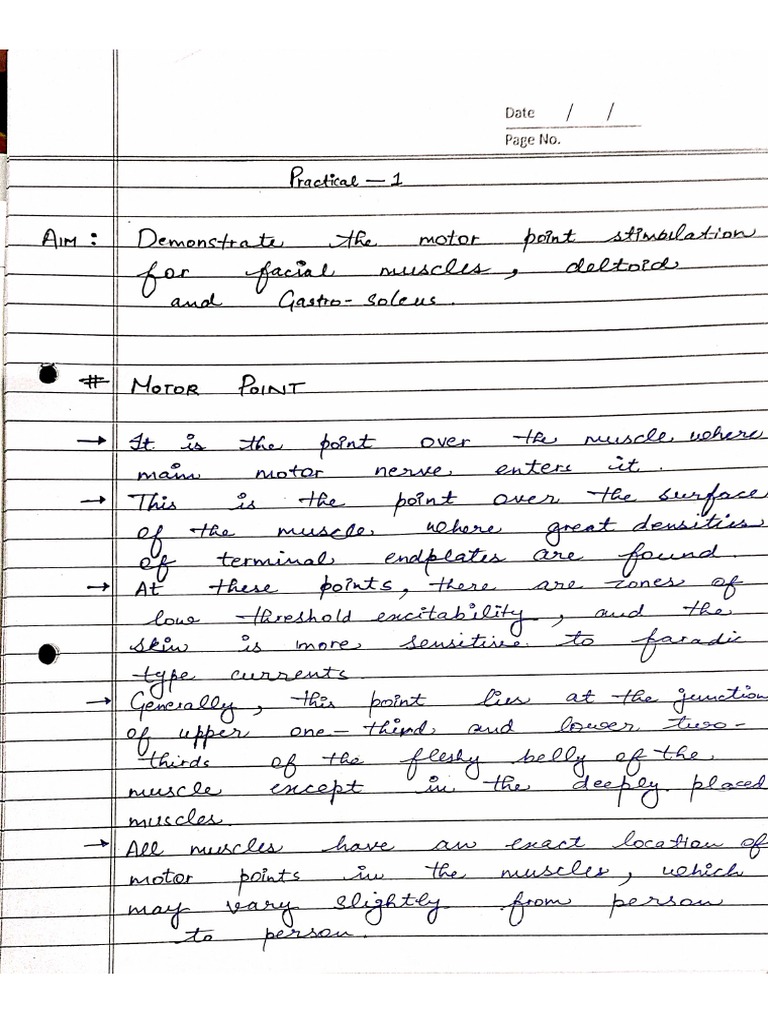 Date / /
Page No.
Practical - 1
AIM : Demonstrate the motor point stimulation
for facial muscles, deltoid
and Gastro-Soleus.
# MOTOR POINT
→ It is the point over the muscle where
main motor nerve enters it.
→ This is the point over the surface
of the muscle where great densities
of terminal endplates are found.
→ At these points, there are zones of
low threshold excitability, and the
skin is more sensitive to faradic
type currents.
→ Generally, this point lies at the junction
of upper one-third and lower two-
thirds of the fleshy belly of the
muscle except in the deeply placed
muscles.
→ All muscles have an exact location of
motor points in the muscles, which
may vary slightly from person
to person.